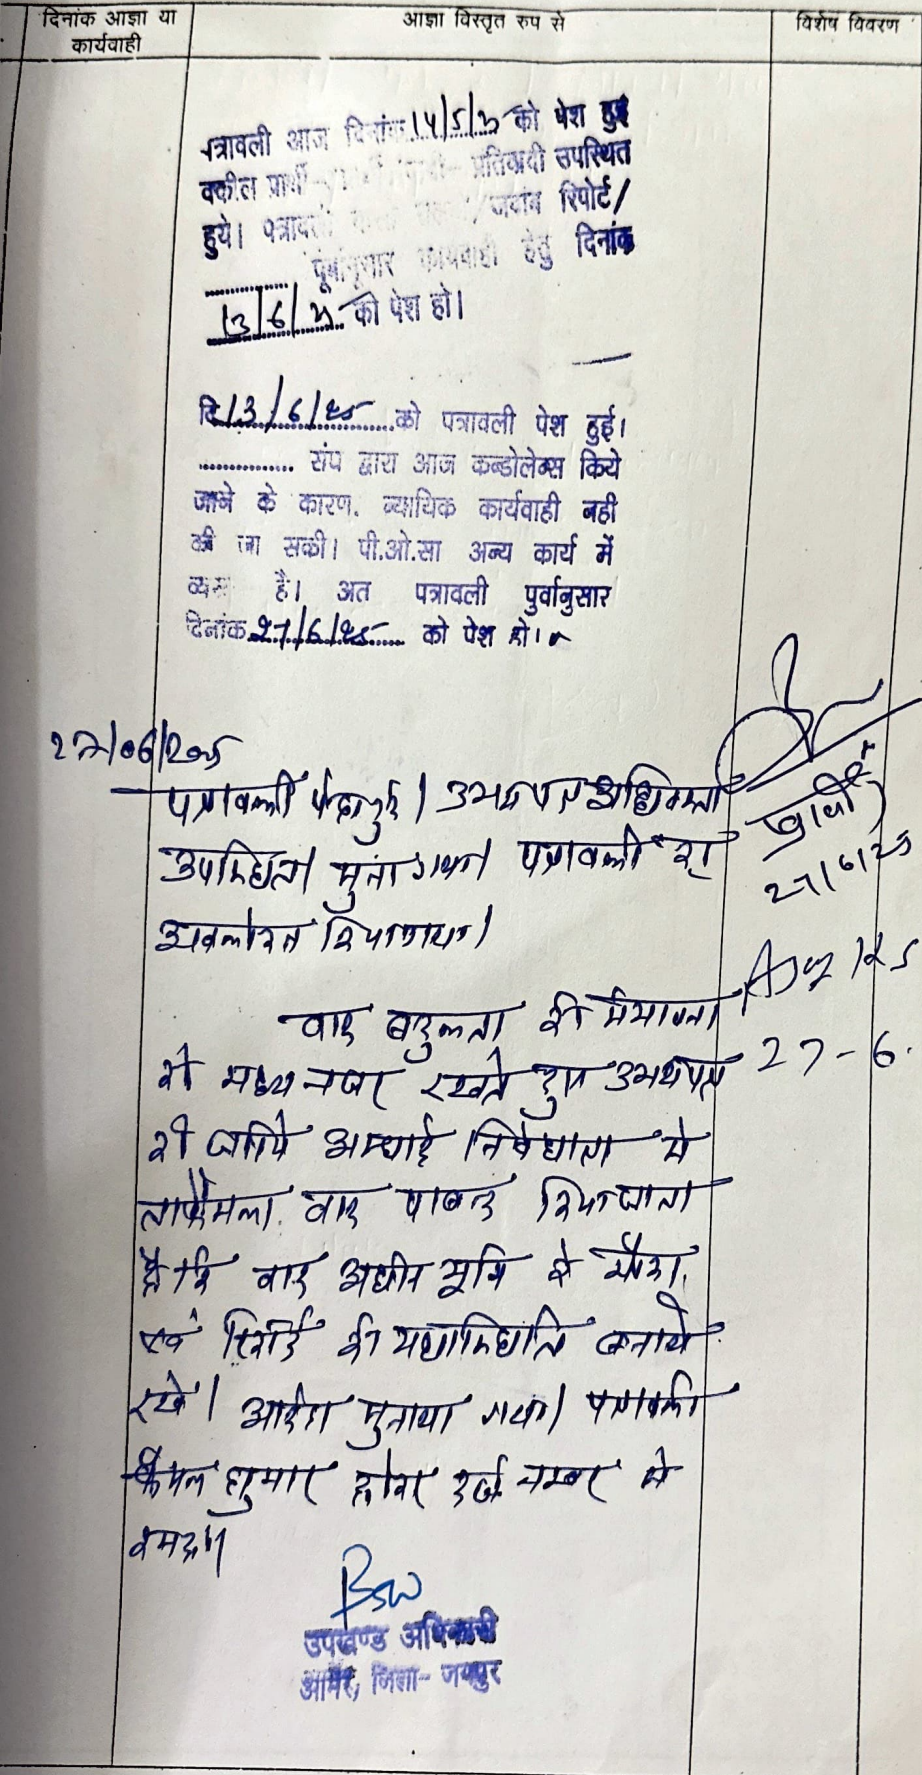 दिनांक आज्ञा या
कार्यवाही
आज्ञा विस्तृत रुप से
विशेष विवरण
पत्रावली आज दिनांक 14/5/25 को पेश हुई
वकील प्रार्थी प्रतिवादी उपस्थित
हुये। पत्रावली /जवाब रिपोर्ट/
पूर्वानुसार कार्यवाही हेतु दिनांक
13/6/25 को पेश हो।
दि 13/6/25 को पत्रावली पेश हुई।
संघ द्वारा आज कन्डोलेन्स किये
जाने के कारण. न्यायिक कार्यवाही नही
की जा सकी। पी.ओ.सा अन्य कार्य में
व्यस्त है। अत पत्रावली पुर्वानुसार
दिनांक 27/6/25 को पेश हो।
27/06/2025
पत्रावली पेश हुई। उभयपक्ष अधिवक्ता
उपस्थित। सुना गया। पत्रावली का
अवलोकन किया गया।
प्रार्थी
27/6/25
वाद बहुलता की संभावना
को मध्य नजर रखते हुए उभयपक्ष
27-6.
को जरिये अस्थाई निषेधाज्ञा से
ताफैसला वाद पाबन्द किया जाता
है कि वाद अधीन भूमि के मौका
एवं रिकॉर्ड की यथास्थिति बनाये
रखे। आदेश सुनाया गया। पत्रावली
फैसल शुमार होकर दर्ज नम्बर से
कम हो।
उपखण्ड अधिकारी
आमेर, जिला- जयपुर